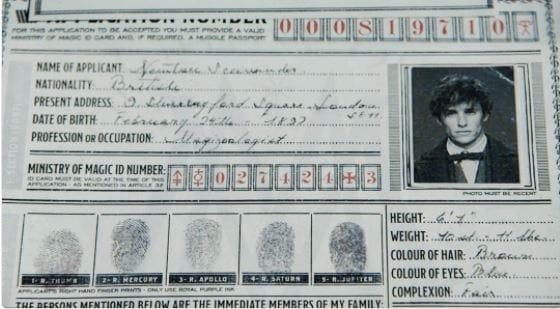 APPLICATION NUMBER 00081971 0
FOR THIS APPLICATION TO BE ACCEPTED YOU MUST PROVIDE A VALID
MINISTRY OF MAGIC ID CARD AND, IF REQUIRED, A MUGGLE PASSPORT
NAME OF APPLICANT: Newton Scamander
NATIONALITY: British
PRESENT ADDRESS: Square London
DATE OF BIRTH: February 24th 1897
PROFESSION OR OCCUPATION: Magizoologist
PHOTO MUST BE RECENT
MINISTRY OF MAGIC ID NUMBER: 027424 3
ID CARD MUST BE VALID AT THE TIME OF THIS
APPLICATION - AS MENTIONED IN ARTICLE 32
1- R. THUMB 2- R. MERCURY 3- R. APOLLO 4- R. SATURN 5- R. JUPITER
APPLICANT'S RIGHT HAND FINGER PRINTS - ONLY USE ROYAL PURPLE INK
HEIGHT: 6'1"
WEIGHT:
COLOUR OF HAIR: Brown
COLOUR OF EYES: Blue
COMPLEXION: Fair
THE PERSONS MENTIONED BELOW ARE THE IMMEDIATE MEMBERS OF MY FAMILY: